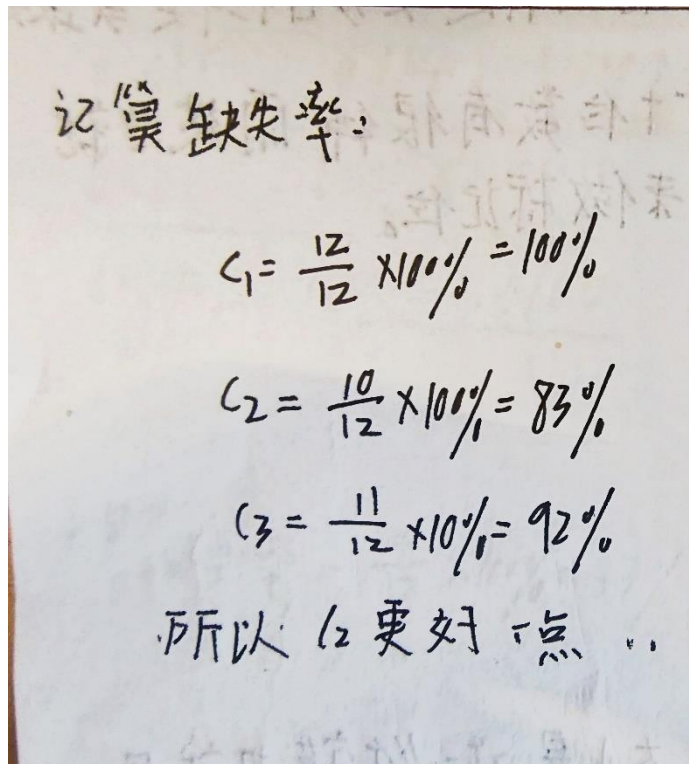 计算缺失率:
C1 = 12/12 ×100% = 100%
C2 = 10/12 ×100% = 83%
C3 = 11/12 ×10% = 92%
所以 C2 更好一点..